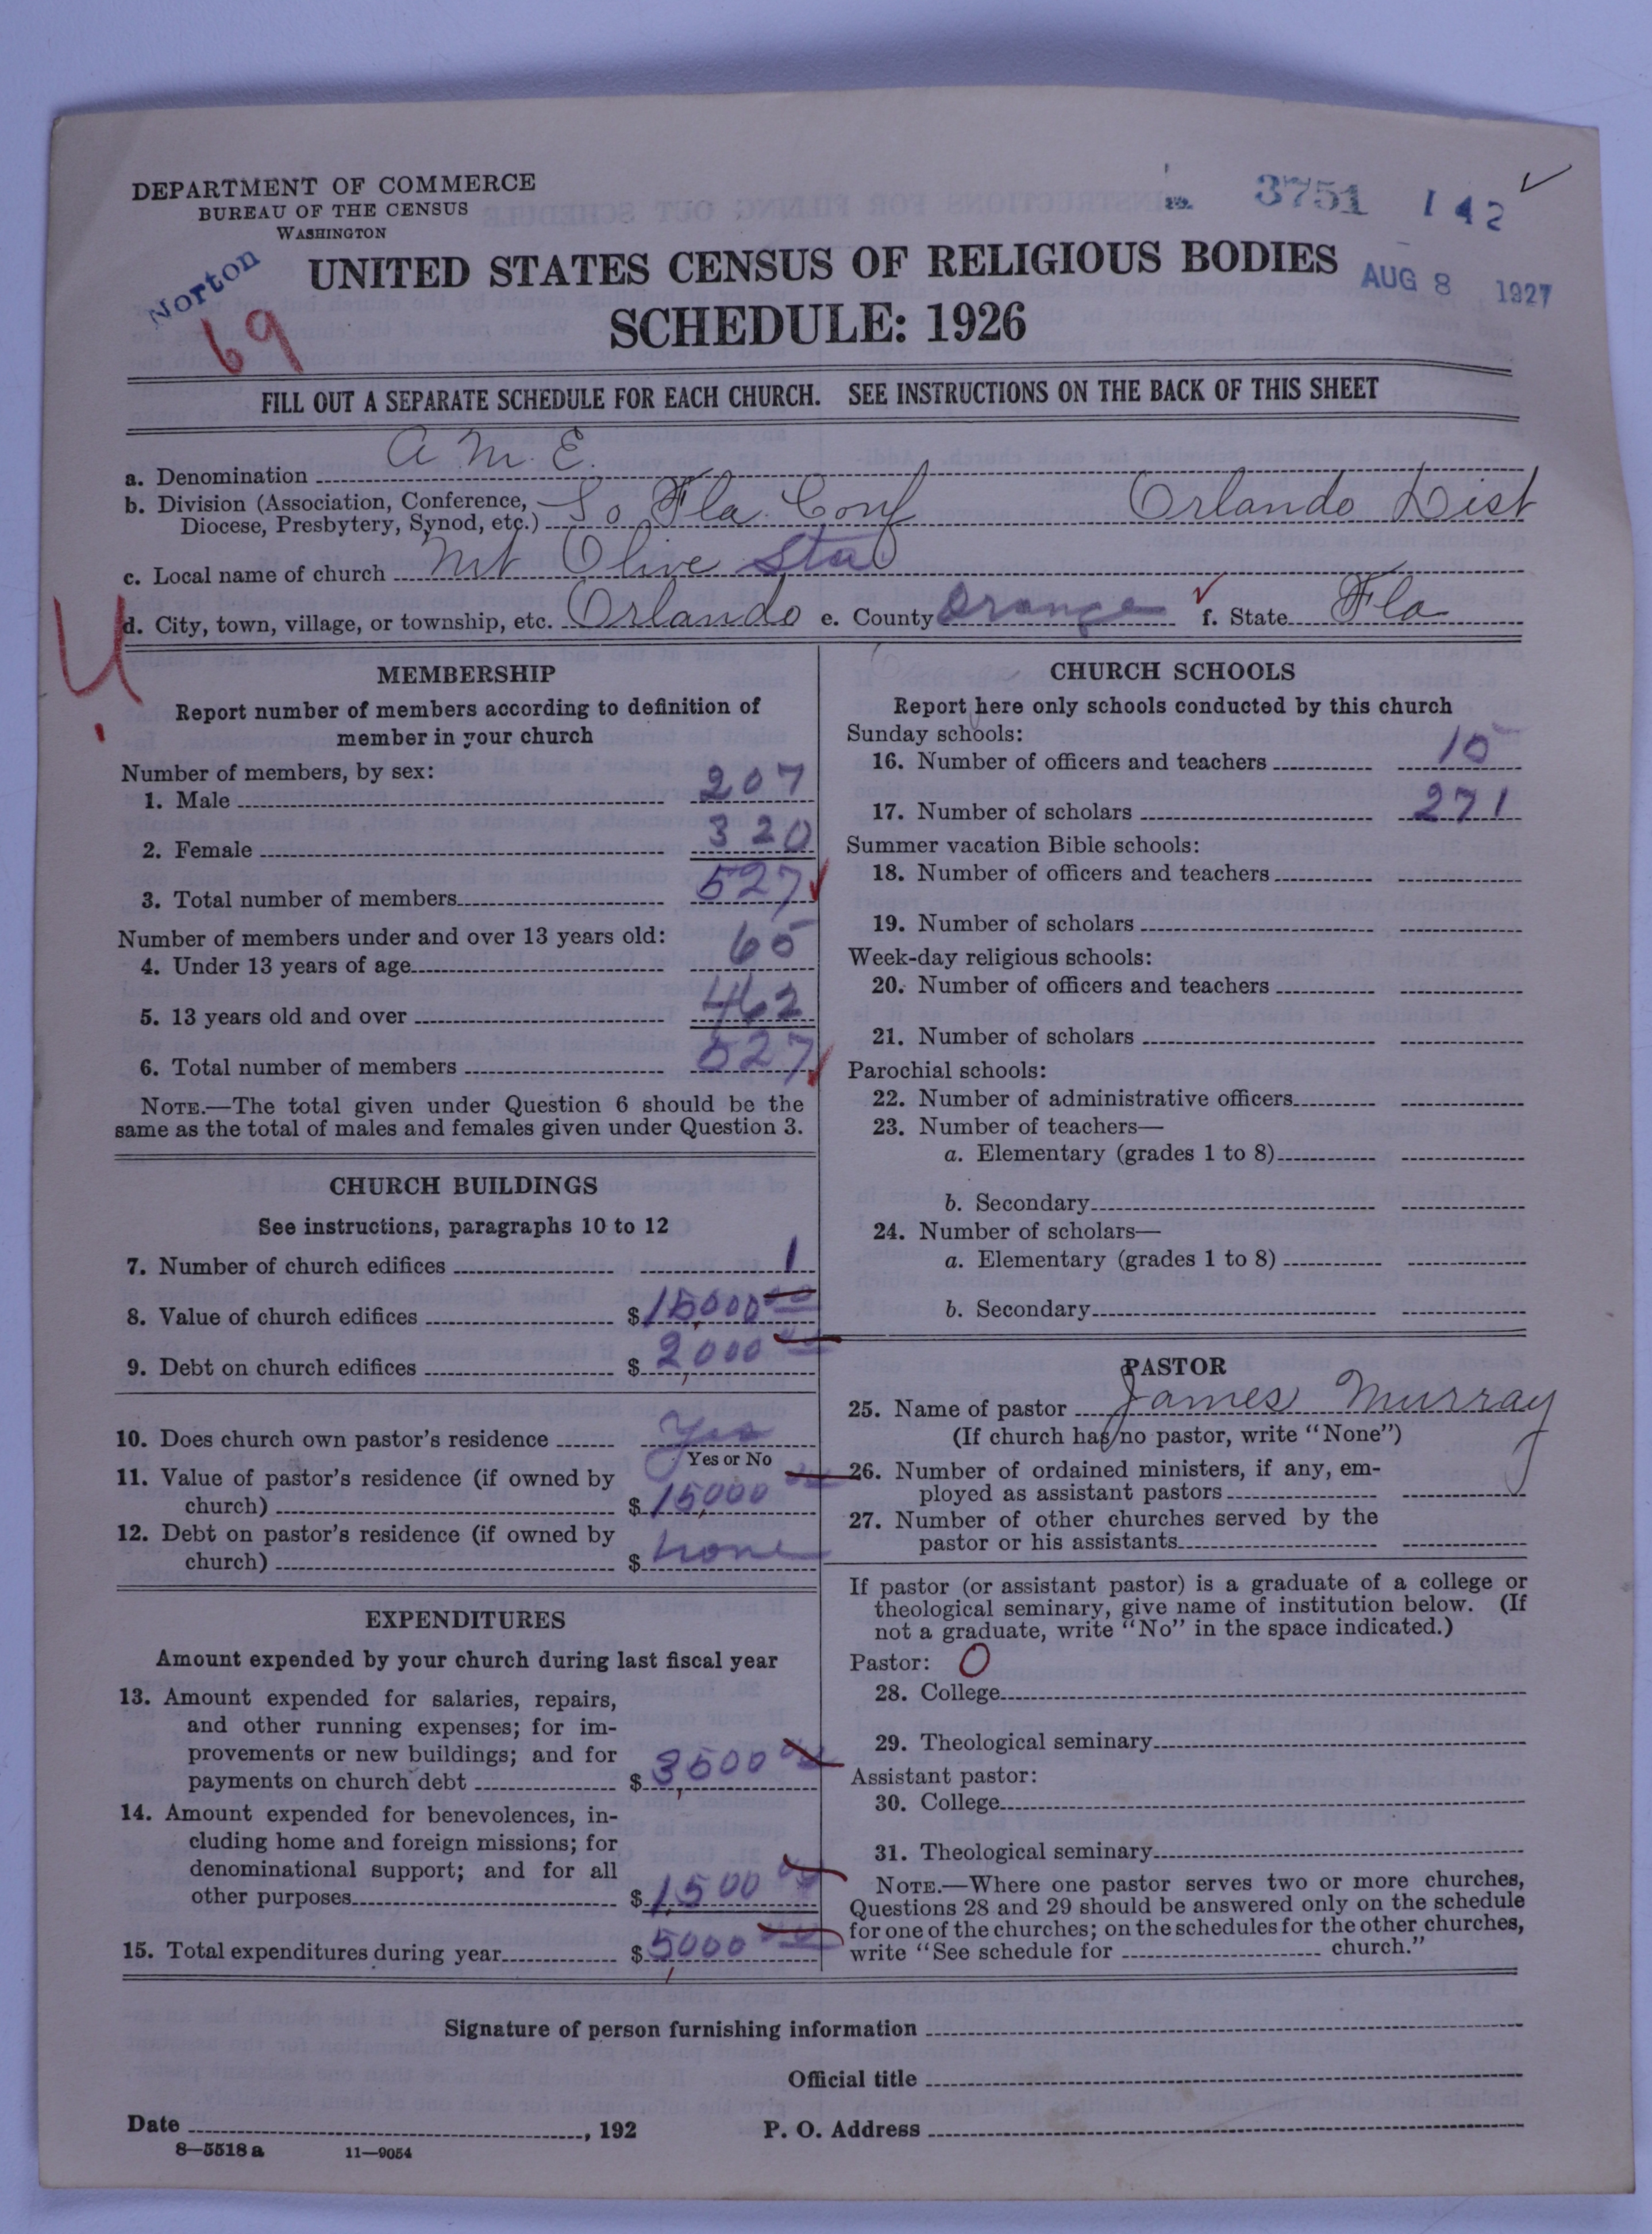 DEPARTMENT OF COMMERCE
BUREAU OF THE CENSUS
WASHINGTON
3751 142
Norton
69
UNITED STATES CENSUS OF RELIGIOUS BODIES
AUG 8 1927
SCHEDULE: 1926
FILL OUT A SEPARATE SCHEDULE FOR EACH CHURCH. SEE INSTRUCTIONS ON THE BACK OF THIS SHEET
a. Denomination A. M. E.
b. Division (Association, Conference, Diocese, Presbytery, Synod, etc.) So Fla. Conf Orlando Dist
c. Local name of church Mt Olive Sta
d. City, town, village, or township, etc. Orlando e. County Orange f. State Fla
MEMBERSHIP
Report number of members according to definition of
member in your church
Number of members, by sex:
1. Male 207
2. Female 320
3. Total number of members 527
Number of members under and over 13 years old:
4. Under 13 years of age 65
5. 13 years old and over 462
6. Total number of members 527
NOTE.—The total given under Question 6 should be the
same as the total of males and females given under Question 3.
CHURCH BUILDINGS
See instructions, paragraphs 10 to 12
7. Number of church edifices 1
8. Value of church edifices $15,000 00
9. Debt on church edifices $2,000 00
10. Does church own pastor's residence Yes
Yes or No
11. Value of pastor's residence (if owned by
church) $15,000 00
12. Debt on pastor's residence (if owned by
church) $ none
EXPENDITURES
Amount expended by your church during last fiscal year
13. Amount expended for salaries, repairs,
and other running expenses; for im-
provements or new buildings; and for
payments on church debt $3,500 00
14. Amount expended for benevolences, in-
cluding home and foreign missions; for
denominational support; and for all
other purposes $1,500 00
15. Total expenditures during year $5,000 00
CHURCH SCHOOLS
Report here only schools conducted by this church
Sunday schools:
16. Number of officers and teachers 15
17. Number of scholars 271
Summer vacation Bible schools:
18. Number of officers and teachers
19. Number of scholars
Week-day religious schools:
20. Number of officers and teachers
21. Number of scholars
Parochial schools:
22. Number of administrative officers
23. Number of teachers—
a. Elementary (grades 1 to 8)
b. Secondary
24. Number of scholars—
a. Elementary (grades 1 to 8)
b. Secondary
PASTOR
25. Name of pastor James Murray
(If church has no pastor, write "None")
26. Number of ordained ministers, if any, em-
ployed as assistant pastors
27. Number of other churches served by the
pastor or his assistants
If pastor (or assistant pastor) is a graduate of a college or
theological seminary, give name of institution below. (If
not a graduate, write "No" in the space indicated.)
Pastor: O
28. College
29. Theological seminary
Assistant pastor:
30. College
31. Theological seminary
NOTE.—Where one pastor serves two or more churches,
Questions 28 and 29 should be answered only on the schedule
for one of the churches; on the schedules for the other churches,
write "See schedule for church."
Signature of person furnishing information
Official title
Date , 192 P. O. Address
8—5518 a 11—9054